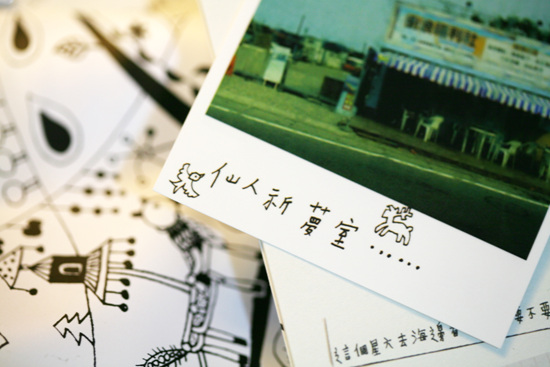 仙人祈夢室......
這個星六去海邊 要不要